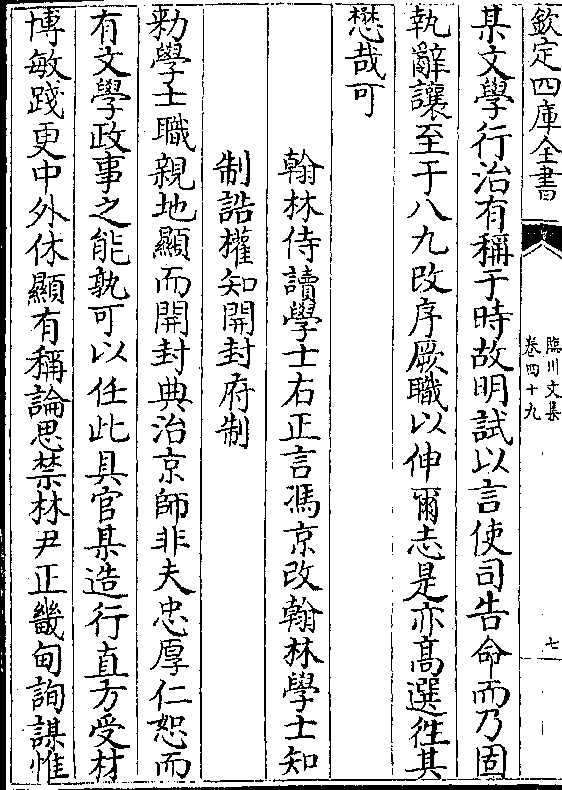 欽定四庫全書
臨川文集
卷四十九
七
某文學行治有稱于時故明試以言使司告命而乃固
執辭讓至于八九改序厥職以伸爾志是亦髙選徃其
懋哉可
翰林侍讀學士右正言馮京改翰林學士知
制誥權知開封府制
勑學士職親地顯而開封典治京師非夫忠厚仁恕而
有文學政事之能孰可以任此具官某造行直方受材
博敏踐更中外休顯有稱論思禁林尹正畿甸詢謀惟